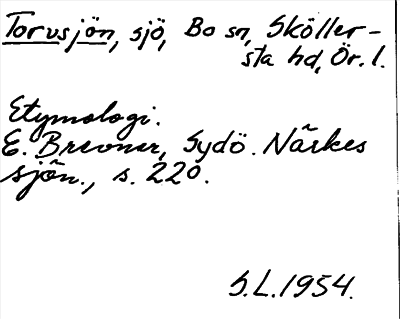 Torvsjön, sjö, Bo sn, Sköller-
sta hd, Ör. l.
Etymologi.
E. Brevner, Sydö. Närkes
sjön., s. 220.
S.L. 1954.